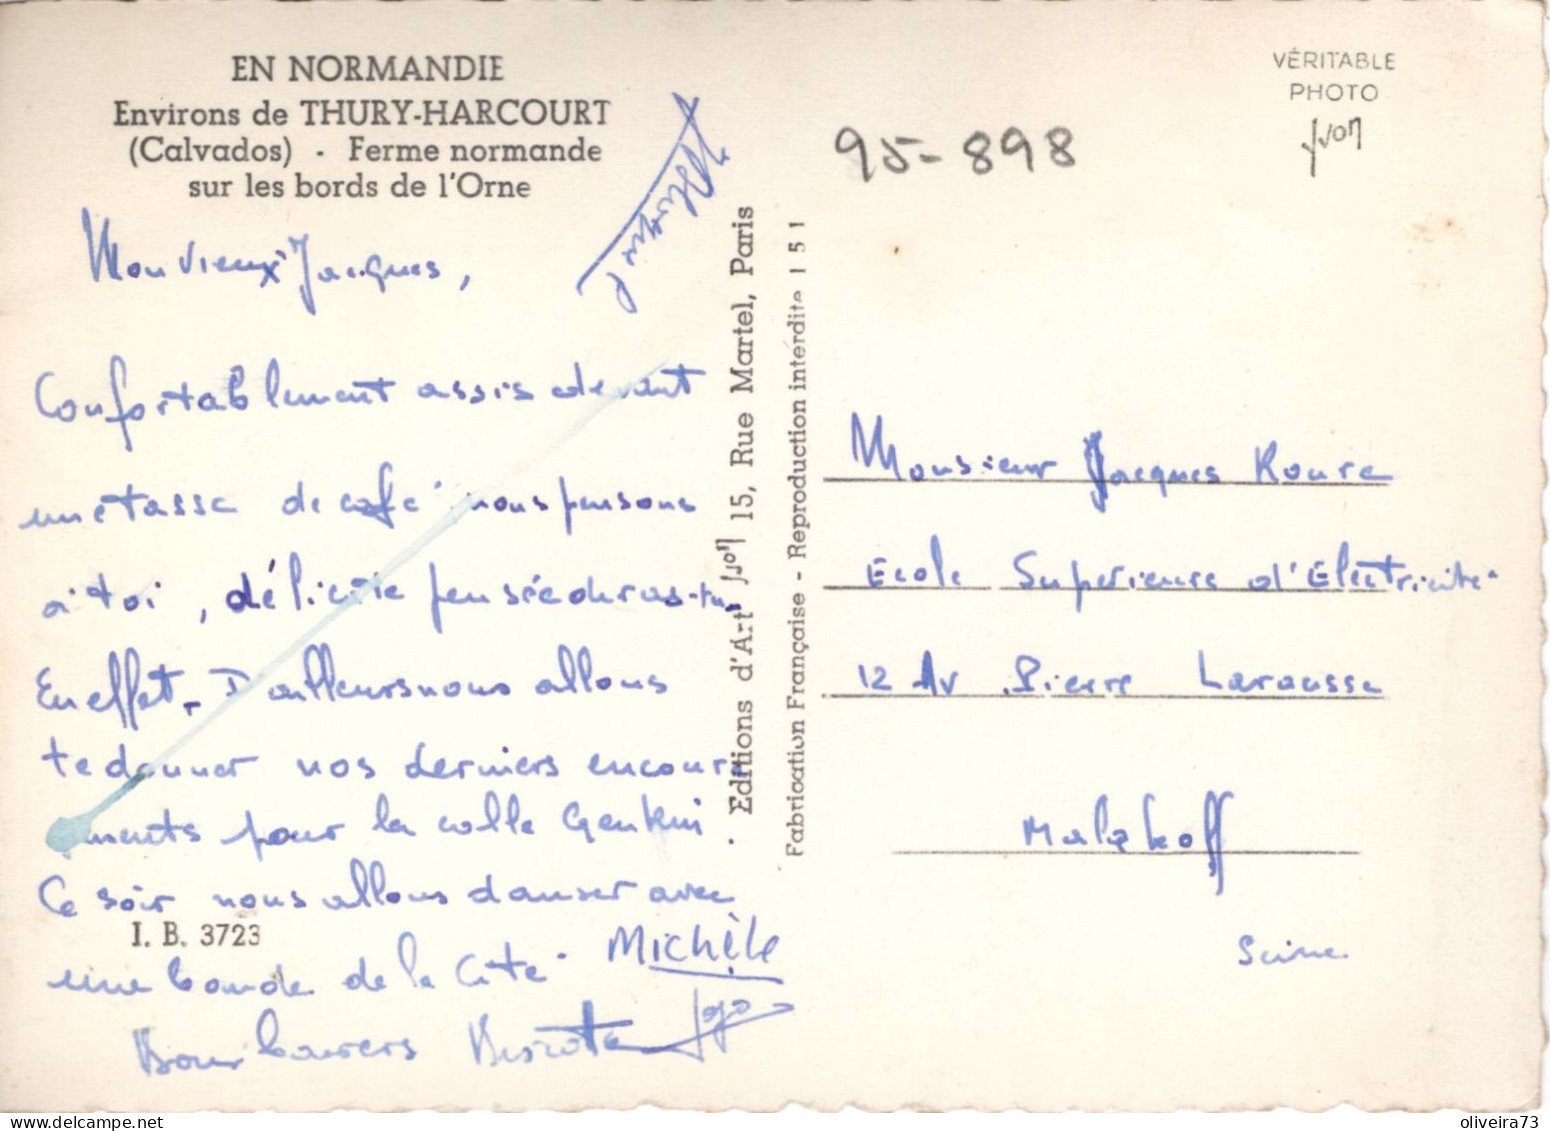 EN NORMANDIE
Environs de THURY-HARCOURT
(Calvados) - Ferme normande
sur les bords de l'Orne
Mon vieux Jacques,
Confortablement assis devant
une tasse de café nous pensons
à toi, délicate pensée diras-tu
En effet. D'ailleurs nous allons
te donner nos derniers encoura
gements pour la colle
Ce soir nous allons danser avec
I. B. 3723
une bande de la Cité. Michèle
Bons baisers
Editions d'Art Yvon 15, Rue Martel, Paris
Fabrication Française - Reproduction interdite 151
VÉRITABLE
PHOTO
Yvon
95-898
Monsieur Jacques Roure
Ecole Superieure d'Electricité
12 Av Pierre Larousse
Malakoff
Seine
oliveira73